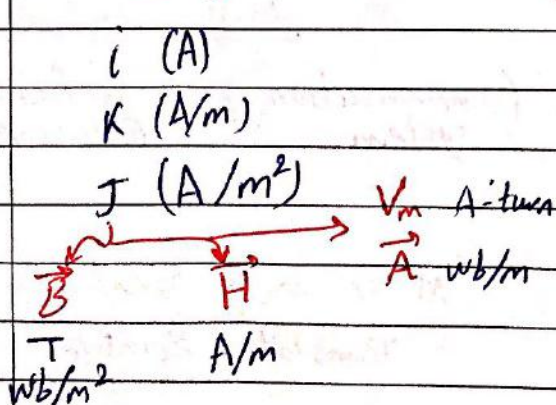 i (A)
K (A/m)
J (A/m²)
Vm A-turn
B⃗ H⃗ A⃗ wb/m
T A/m
wb/m²